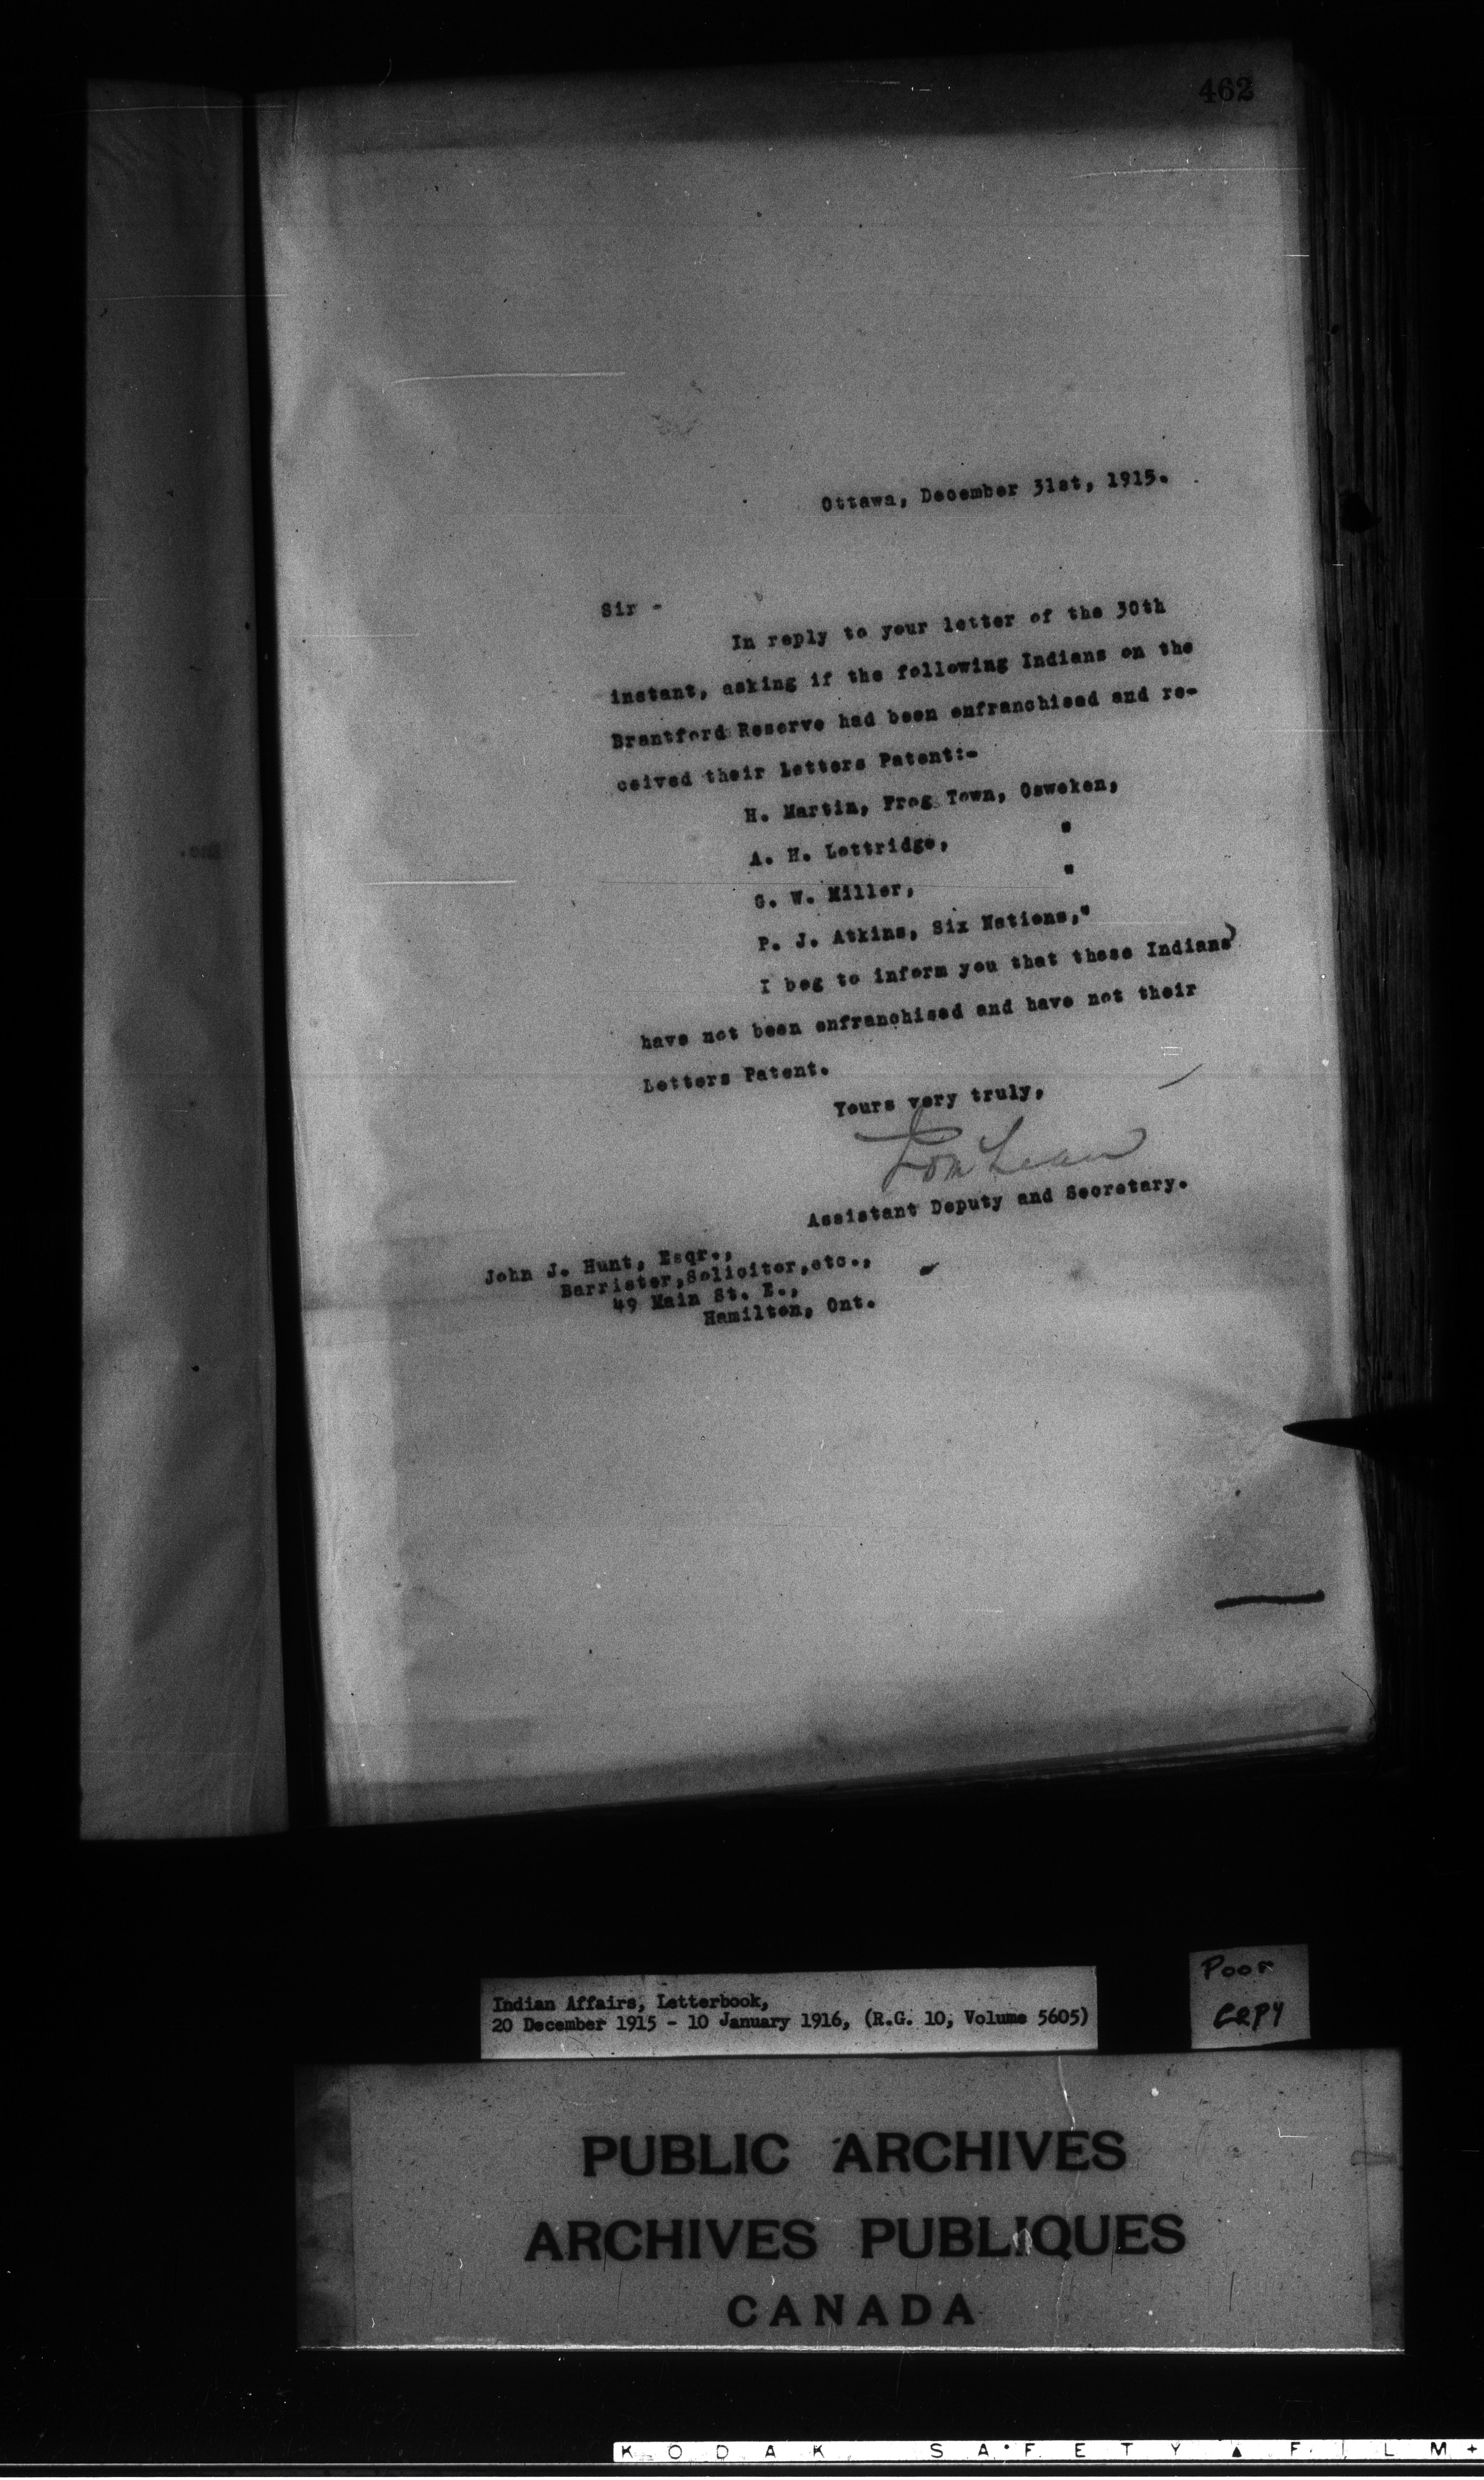 462
Ottawa, December 31st, 1915.
Sir -
In reply to your letter of the 30th
instant, asking if the following Indians on the
Brantford Reserve had been enfranchised and re-
ceived their Letters Patent:-
H. Martin, Frog Town, Osweken,
A. H. Lottridge, "
G. W. Miller, "
P. J. Atkins, Six Nations,"
I beg to inform you that these Indians
have not been enfranchised and have not their
Letters Patent.
Yours very truly,
Assistant Deputy and Secretary.
John J. Hunt, Esqr.,
Barrister,Solicitor,etc.,
49 Main St. E.,
Hamilton, Ont.
Indian Affairs, Letterbook,
20 December 1915 - 10 January 1916, (R.G. 10, Volume 5605)
Poor
COPY
PUBLIC ARCHIVES
ARCHIVES PUBLIQUES
CANADA
KODAK SAFETY ▲ FILM +